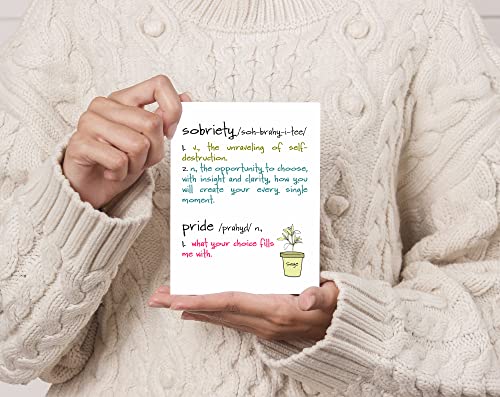 sobriety /soh-brahy-i-tee/
1. v., the unraveling of self-
destruction.
2. n., the opportunity to choose,
with insight and clarity, how you
will create your every, single
moment.
pride /prahyd/ n.,
1. what your choice fills
me with.
Sage